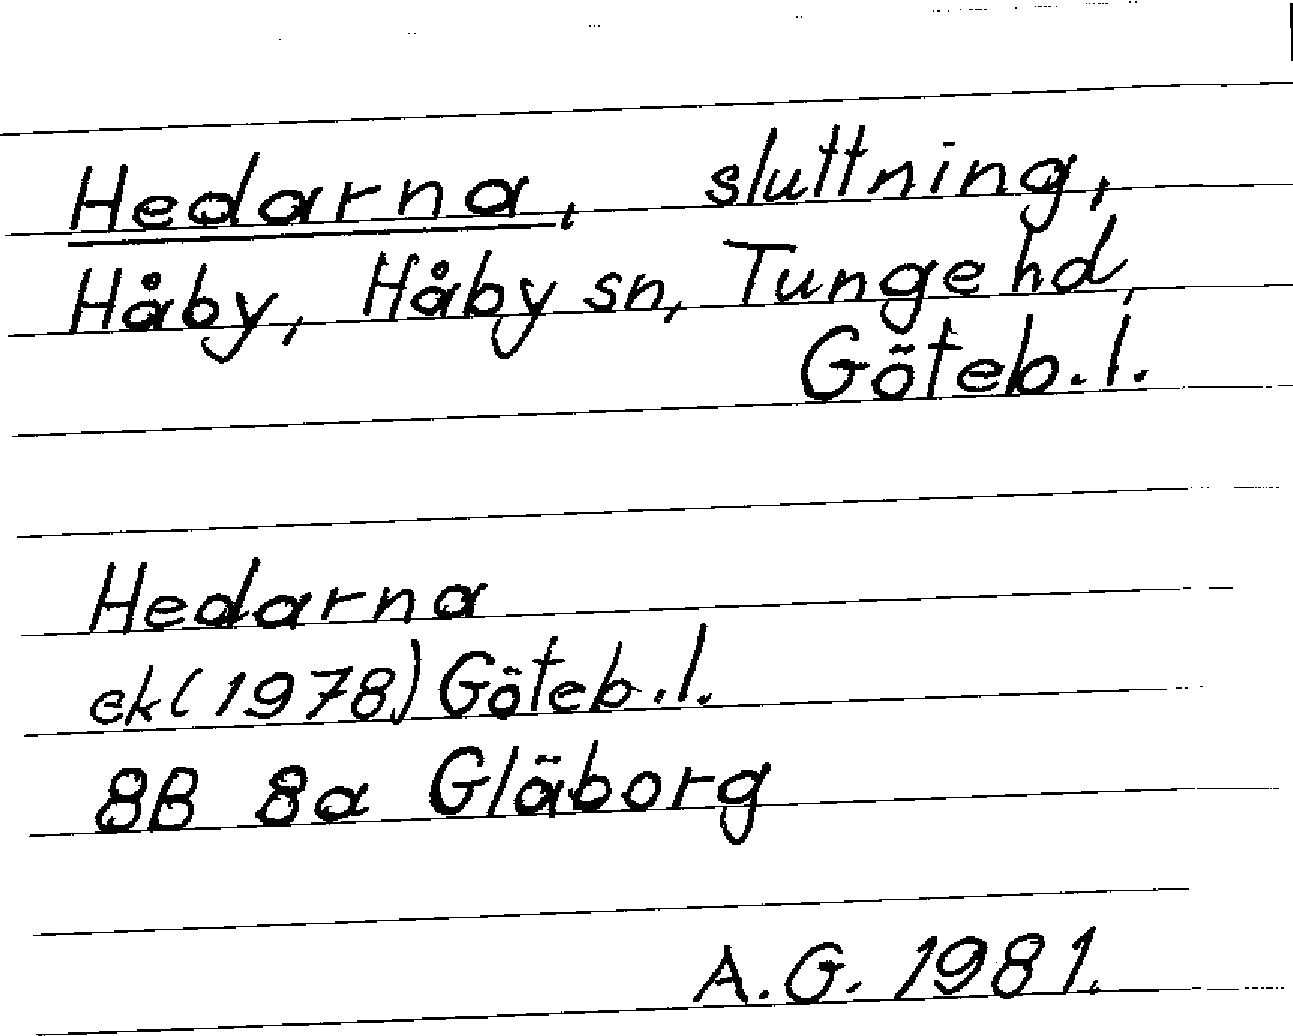 Hedarna, sluttning,
Håby, Håby sn, Tunge hd,
Göteb. l.
Hedarna
ek (1978) Göteb. l.
8B 8a Gläborg
A. G. 1981.